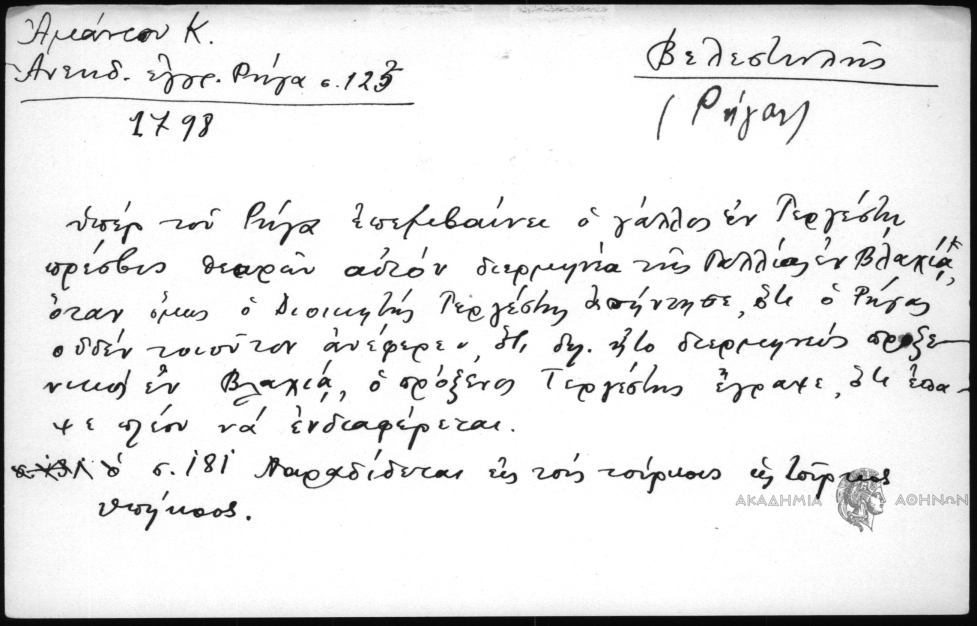 Ἀμάντου Κ.
Ἀνεκδ. ἔγγρ. Ρήγα σ. 125
1798
Βελεστινλῆς
(Ρήγας)
ὑπέρ τοῦ Ρήγα ἐπεμβαίνει ὁ γάλλος ἐν Τεργέστῃ
πρέσβυς θεωρῶν αὐτόν διερμηνέα τῆς Γαλλίας ἐν Βλαχίᾳ,
ὅταν ὅμως ὁ Διοικητής Τεργέστης ἀπήντησε, ὅτι ὁ Ρήγας
οὐδέν τοιοῦτον ἀνέφερεν, ὅτι δηλ. ἦτο διερμηνεύς προξε-
νικός ἐν Βλαχίᾳ, ὁ πρόξενος Τεργέστης ἔγραψε, ὅτι ἔπα-
ψε πλέον νά ἐνδιαφέρεται.
σ. 181 Παραδίδεται εἰς τούς τούρκους ὡς τοῦρκος
ὑπήκοος.
ΑΚΑΔΗΜΙΑ ΑΘΗΝΩΝ